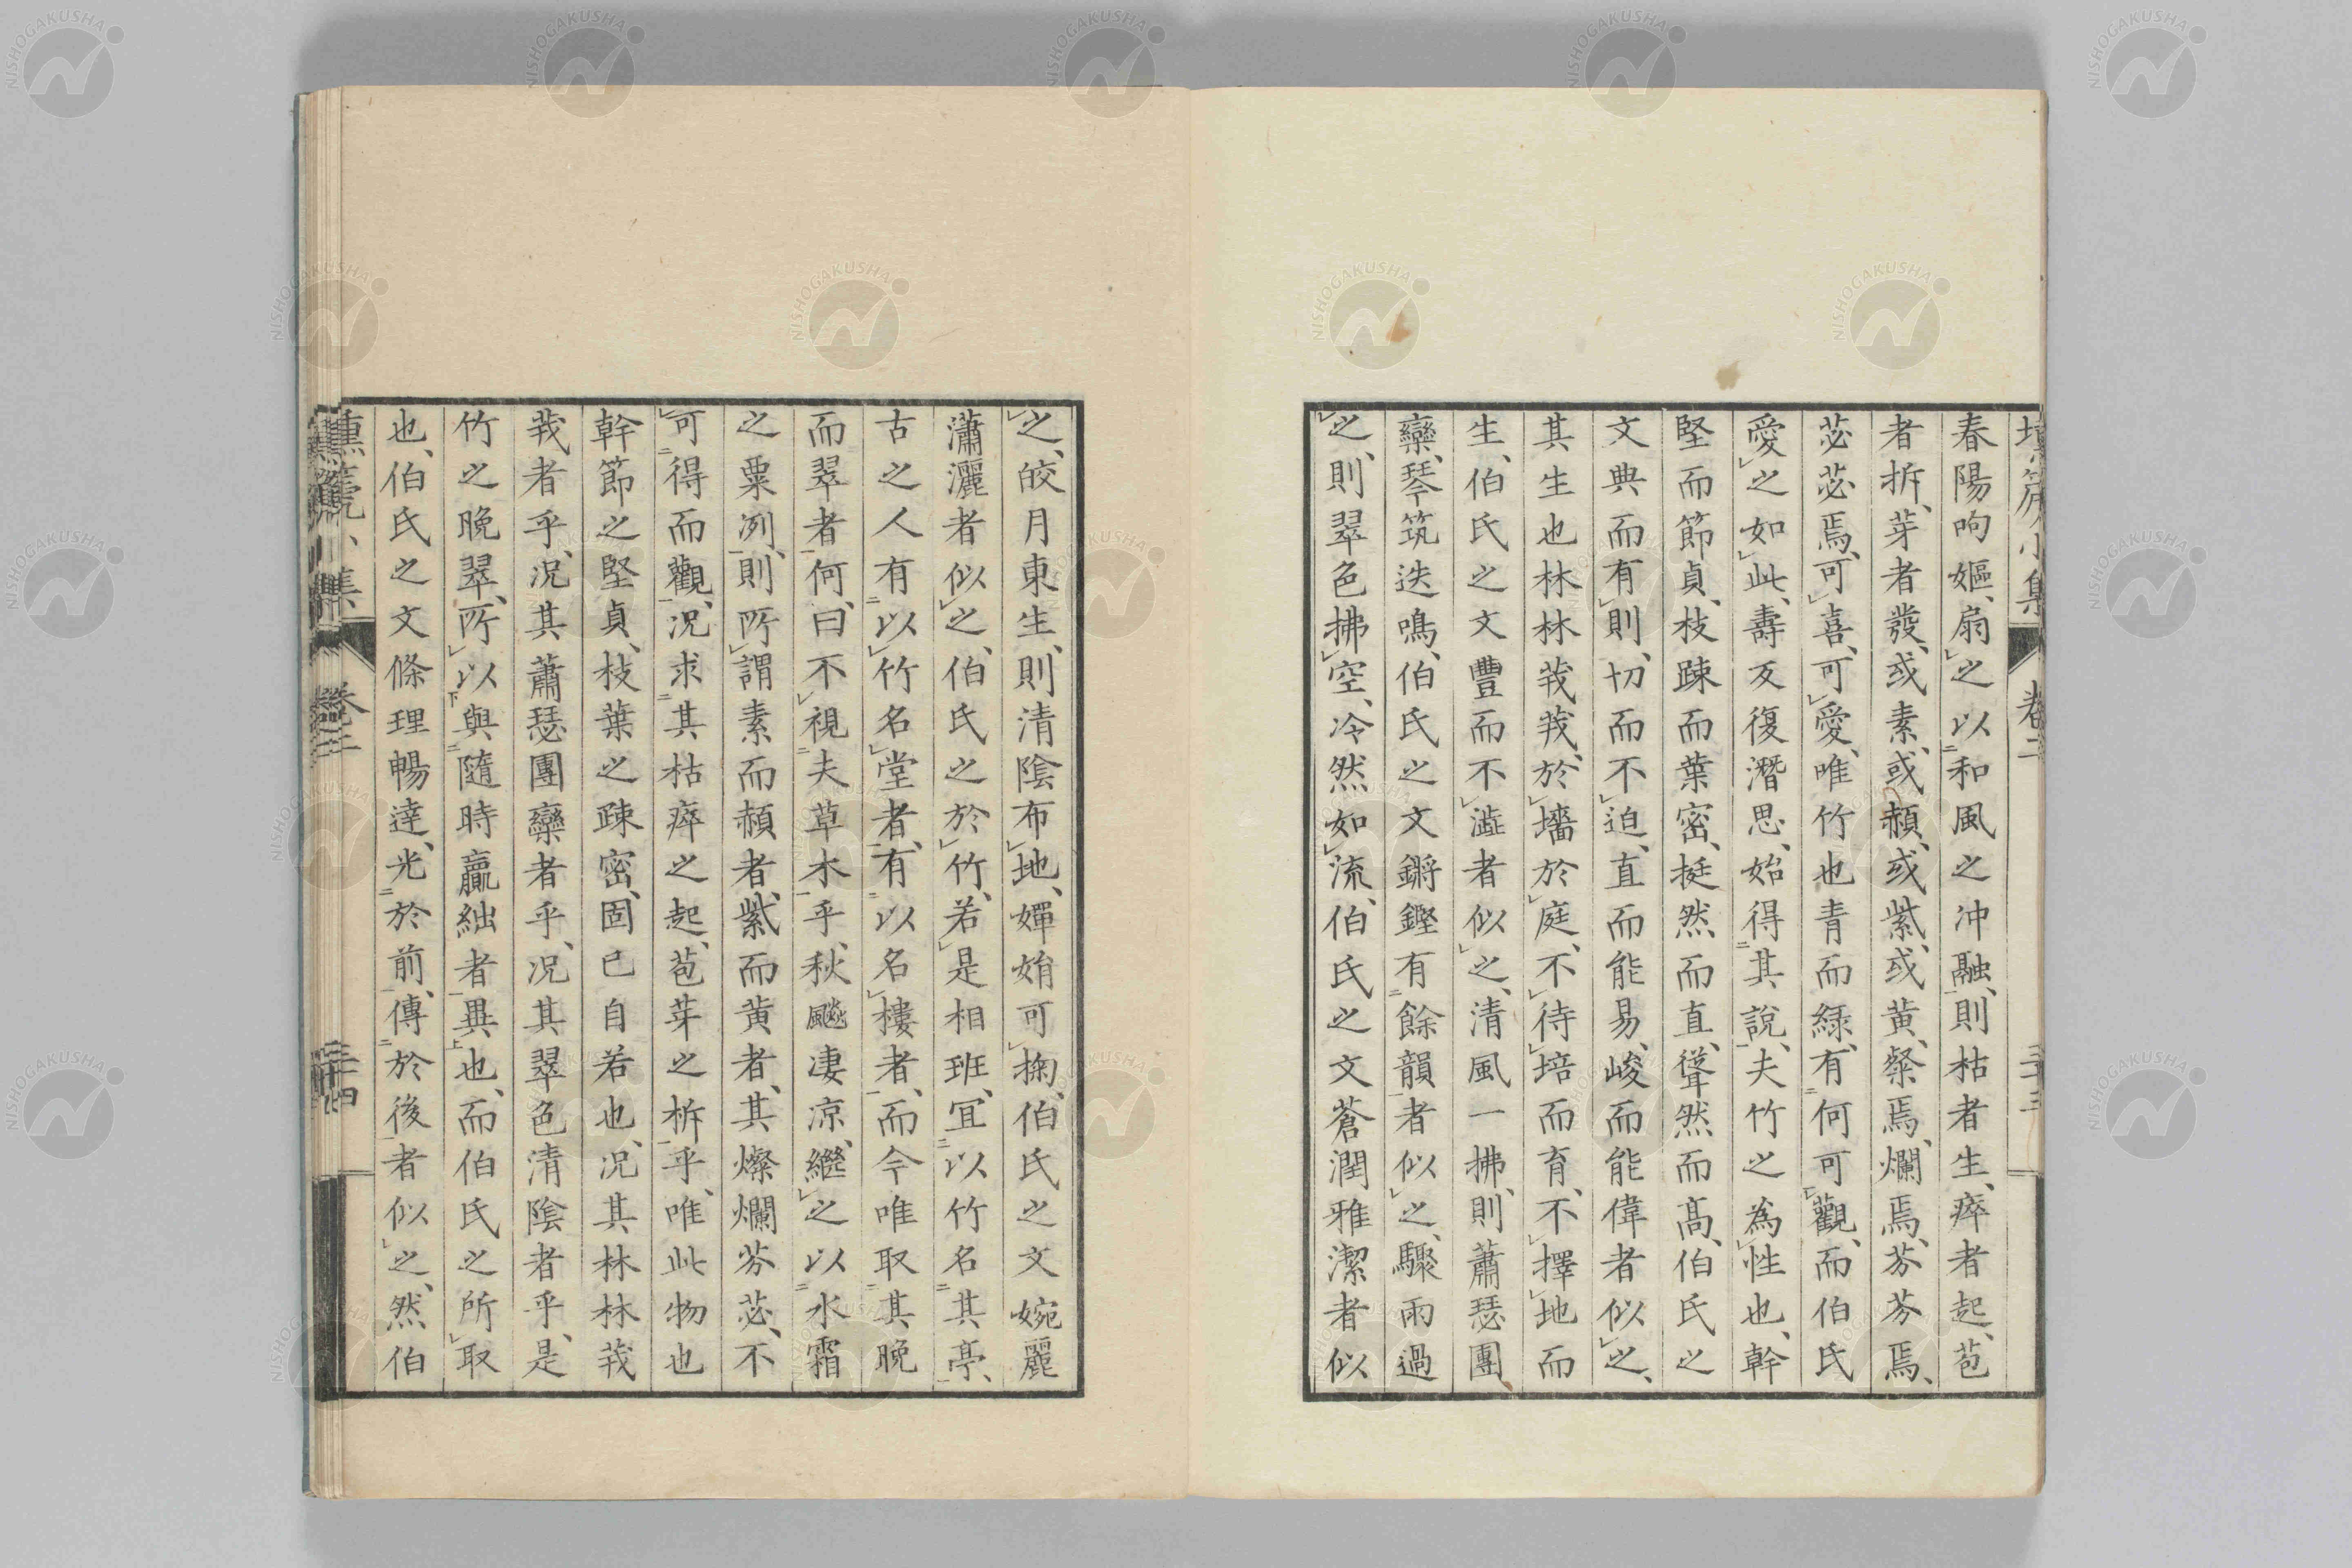 塤篪小集 卷二 二十三
春陽呴嫗、扇之以和風之冲融、則枯者生、瘁者起、苞
者拆、芽者發、或素、或赬、或紫、或黄、粲焉、爛焉、芬芬焉、
苾苾焉、可喜、可愛、唯竹也青而緑、有何可觀、而伯氏
愛之如此、壽反復潛思、始得其說、夫竹之為性也、幹
堅而節貞、枝踈而葉密、挺然而直、聳然而高、伯氏之
文典而有則、切而不迫、直而能易、峻而能偉者似之、
其生也林林莪莪、於墻於庭、不待培而育、不擇地而
生、伯氏之文豐而不澁者似之、清風一拂、則蕭瑟團
欒、琴筑迭鳴、伯氏之文鏘鏗有餘韻者似之、驟雨過
之、則翠色拂空、冷然如流、伯氏之文蒼潤雅潔者似
之、皎月東生、則清陰布地、嬋娟可掬、伯氏之文婉麗
瀟灑者似之、伯氏之於竹、若是相班、宜以竹名其亭、
古之人有以竹名堂者、有以名樓者、而今唯取其晚
而翠者、何、曰不視夫草木乎、秋飈凄凉、繼之以水霜
之粟冽、則所謂素而赬者、紫而黄者、其燦爛芬苾、不
可得而觀、況求其枯瘁之起、苞芽之柝乎、唯此物也
幹節之堅貞、枝葉之踈密、固已自若也、况其林林莪
莪者乎、況其蕭瑟團欒者乎、况其翠色清陰者乎、是
竹之晚翠、所以與隨時贏絀者異也、而伯氏之所取
也、伯氏之文條理暢達、光於前、傳於後者似之、然伯